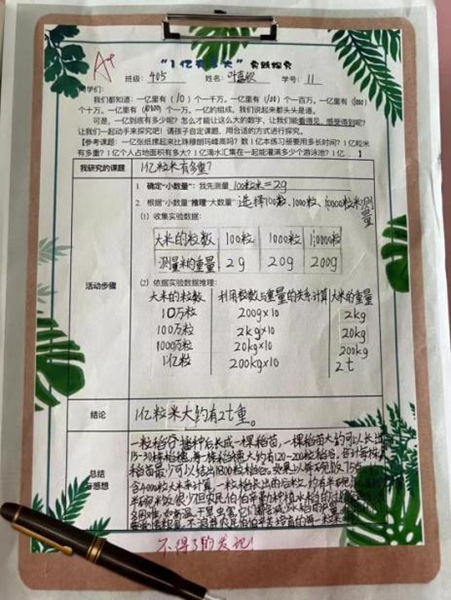 A+
"1亿有多大" 实践探究
班级: 405 姓名: 叶 学号: 11
同学们:
我们都知道: 一亿里有 (10) 个一千万。一亿里有 (100) 个一百万。一亿里有 (1000)
个十万。一亿里有 (10000) 个一万。一亿的组成, 我们说起来都头头是道。
可是, 一亿到底有多少呢? 怎么才能让这么大的数字, 让我们能看得见, 感受得到呢?
让我们一起动手来探究吧! 请孩子自定课题, 用合适的方式进行探究。
【参考课题: 一亿张纸摞起来比珠穆朗玛峰高吗? 数 1 亿本练习册要用多长时间? 1 亿粒米
有多重? 1 亿个人占地面积有多大? 1 亿滴水汇集在一起能灌满多少个游泳池? 1 亿... 】
我研究的课题 1亿粒米有多重?
1. 确定"小数量": 我先测量 100粒米=2g
2. 根据"小数量"推理"大数量": 选择100粒、1000粒、10000粒米测
量
(1) 收集实验数据:
大米的粒数 100粒 1000粒 10000粒
测量米的重量 2g 20g 200g
活动步骤
(2) 依据实验数据推理:
大米的粒数 利用粒数与重量的关系计算 大米的重量
10万粒 200g×10 2kg
100万粒 2kg×10 20kg
1000万粒 20kg×10 200kg
1亿粒 200kg×10 2t
结论 1亿粒米大约有2t重。
总结
感想
一粒稻谷播种后长成一棵稻苗,一棵稻苗大约可以长出
15-30株稻穗,每一株稻穗大约有120-200粒稻谷,合计每株
稻苗最少可以结出1800粒稻谷。
不得了的发现!